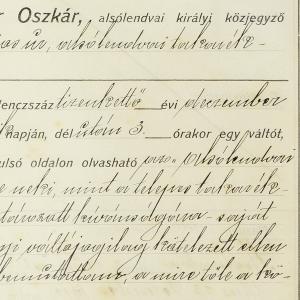 r Oszkár, alsólendvai királyi közjegyző
úr, alsólendvai takarék-
lenczszáz tizenkettő évi deczember
napján, délután 3. órakor egy váltót,
ulsó oldalon olvasható az "alsólendvai
e neki, mint a teljes takarék-
kivánságára saját
váltójogilag kötelezett ellen
bemutattam, a mire tőle a kö-